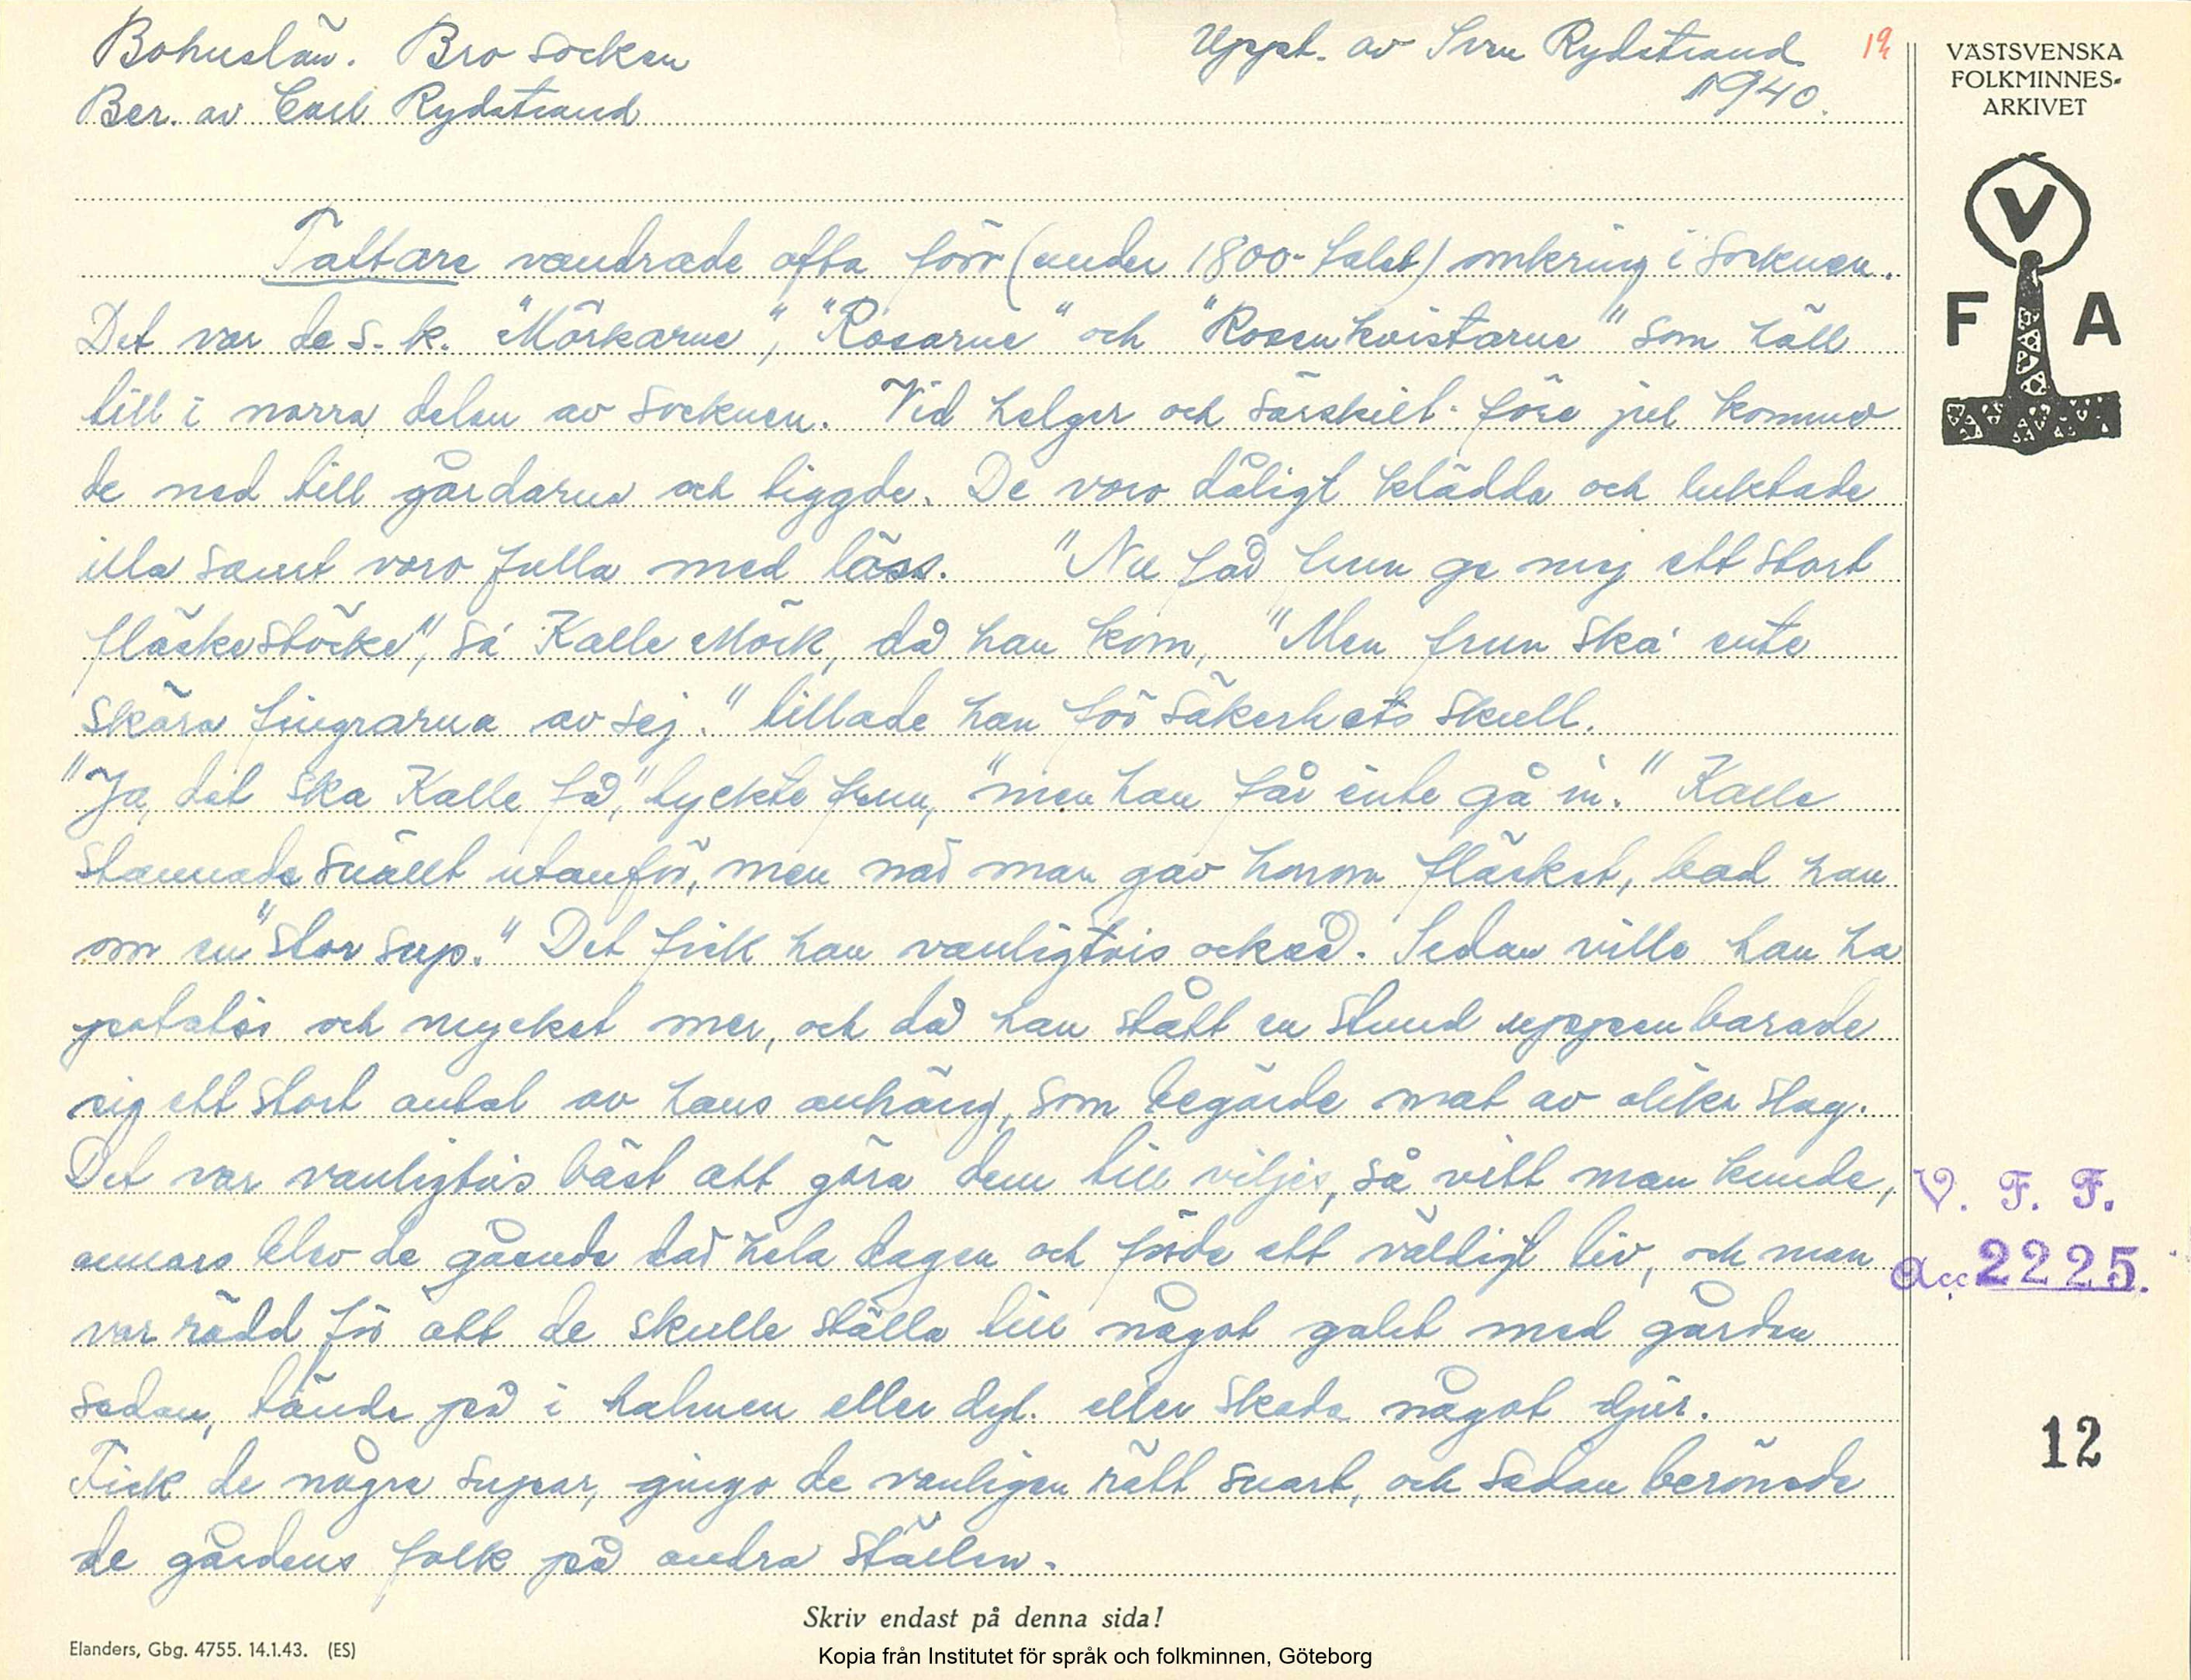 Bohuslän. Bro socken
Ber. av Carl Rydstrand
Uppt. av Sven Rydstrand
1940.
VÄSTSVENSKA
FOLKMINNES-
ARKIVET
V
F A
Tattare vandrade ofta förr (under 1800-talet) omkring i socknen.
Det var de s.k. "Mörkarne", "Rosarne" och "Rosenkvistarne" som höll
till i norra delen av socknen. Vid helger och särskilt före jul kommo
de ned till gårdarna och tiggde. De voro dåligt klädda och luktade
illa samt voro fulla med löss. "Nu får frun ge mig ett stort
fläskestöcke", sa' Kalle Mörk, då han kom, "Men frun ska' ente
skära fingrarna av sej." tillade han för säkerhets skull.
"Ja, det ska Kalle få," tyckte frun, "men han får inte gå in." Kalle
stannade snällt utanför, men när man gav honom fläsket, bad han
om en "stor sup." Det fick han vanligtvis också. Sedan ville han ha
potatis och mycket mer, och då han stått en stund uppenbarade
sig ett stort antal av hans anhäng, som begärde mat av olika slag.
Det var vanligtvis bäst att göra dem till viljes, så vitt man kunde,
annars blev de gående där hela dagen och förde ett väldigt liv, och man
var rädd för att de skulle ställa till något galet med gården
sedan, tände på i halmen eller dyl. eller skada något djur.
Fick de några supar, gingo de vanligen rätt snart, och sedan berömde
de gårdens folk på andra ställen.
V. F. F.
Acc 2225.
12
Skriv endast på denna sida!
Elanders, Gbg. 4755. 14.1.43. (ES)
Kopia från Institutet för språk och folkminnen, Göteborg